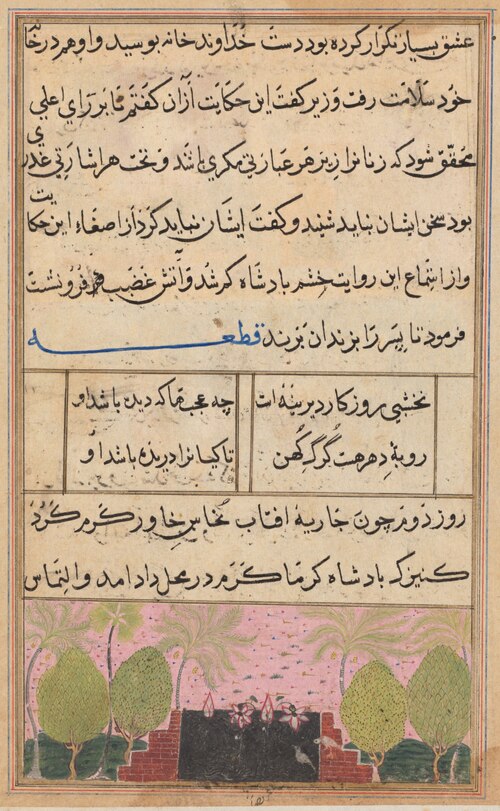 عشق بسیار تکرار کرده بود دست خداوند خانه بوسید و او هم در خانه
خود سلامت رفت وزیر گفت این حکایت ازان گفتم تا بر رای اعلی
محقق شود که زنانرا زیر هر عبارتی مکری باشد و تحت هر اشارتی غدری
بود سخن ایشان نباید شنید و گفت ایشان نباید کرد از اصغاء این حکایت
و از استماع این روایت خشم بادشاه کم شد و آتش غضب هم فرو نشست
فرمود تا پسر را بزندان بزند قطعه
نخشبی روزکار دیرینه است چه عجبها که دیده باشد او
روبهٔ دهر هست گرگ کهن تا کیانرا دریده باشد او
روز دوم چون جاریهٔ افتاب نخاس خاور گرم کرد
کنیزک بادشاه گرماگرم در محل داد امد و التماس